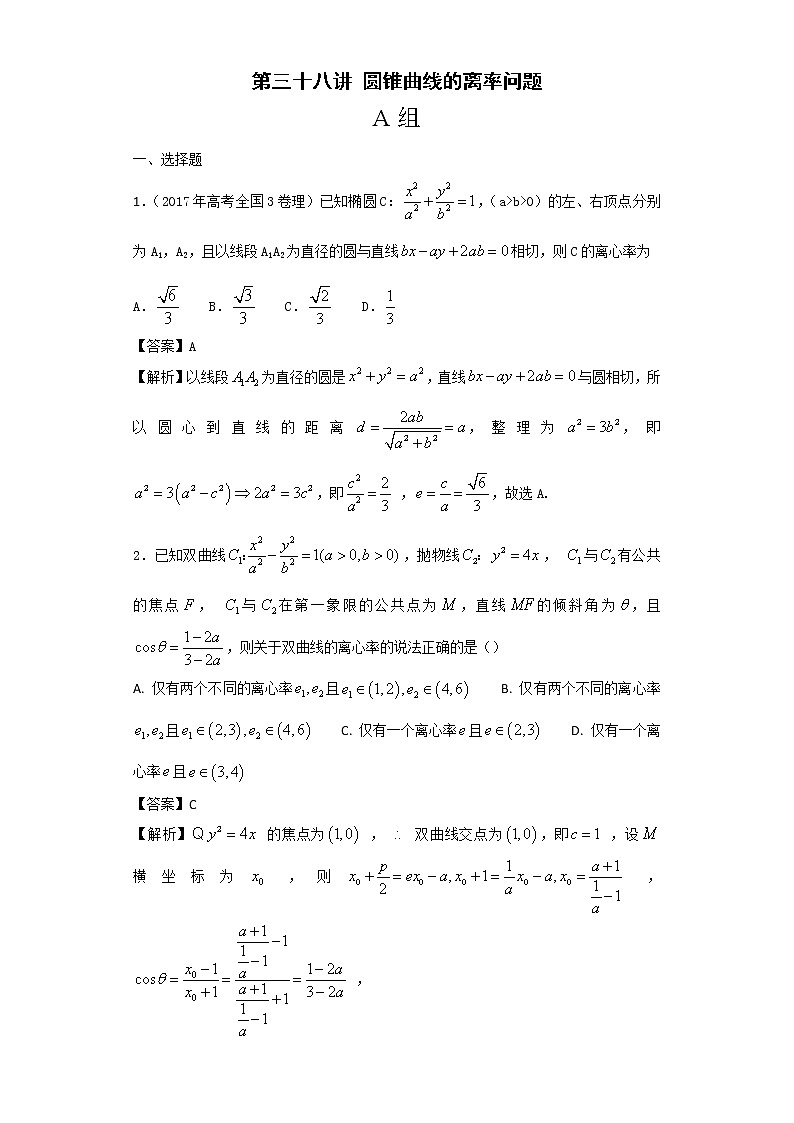 第三十八讲 圆锥曲线的离率问题
A 组
一、选择题
1.(2017年高考全国3卷理)已知椭圆C: x²/a² + y²/b² = 1,(a>b>0)的左、右顶点分别
为A₁,A₂,且以线段A₁A₂为直径的圆与直线bx−ay+2ab=0相切,则C的离心率为
A. √6/3 B. √3/3 C. √2/3 D. 1/3
【答案】A
【解析】以线段A₁A₂为直径的圆是x²+y²=a²,直线bx−ay+2ab=0与圆相切,所
以圆心到直线的距离 d = 2ab/√(a²+b²) = a,整理为 a²=3b²,即
a²=3(a²−c²)⇒2a²=3c²,即c²/a² = 2/3 ,e = c/a = √6/3,故选A.
2. 已知双曲线C₁: x²/a² − y²/b² = 1(a>0,b>0),抛物线C₂: y²=4x, C₁与C₂有公共
的焦点F, C₁与C₂在第一象限的公共点为M,直线MF的倾斜角为θ,且
cosθ = (1−2a)/(3−2a),则关于双曲线的离心率的说法正确的是()
A. 仅有两个不同的离心率e₁,e₂且e₁∈(1,2),e₂∈(4,6) B. 仅有两个不同的离心率
e₁,e₂且e₁∈(2,3),e₂∈(4,6) C. 仅有一个离心率e且e∈(2,3) D. 仅有一个离
心率e且e∈(3,4)
【答案】C
【解析】Q y²=4x 的焦点为(1,0) , ∴ 双曲线交点为(1,0),即c=1 ,设M
横坐标为x₀,则 x₀ + p/2 = ex₀ − a, x₀ + 1 = (1/a)x₀ − a, x₀ = (a+1)/(1/a − 1) ,
cosθ = (x₀−1)/(x₀+1) = ((a+1)/(1/a − 1) − 1)/((a+1)/(1/a − 1) + 1) = (1−2a)/(3−2a) ,